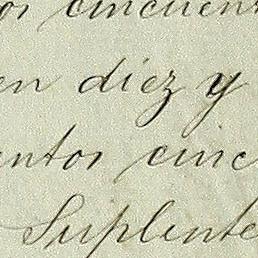 os cincuent
en diez y
entos cinc
Suplente